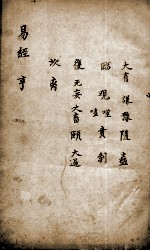 大有 謙 豫 隨 蠱
臨 觀 噬嗑 賁 剝
復 无妄 大畜 頤 大過
坎 离
易經 亨